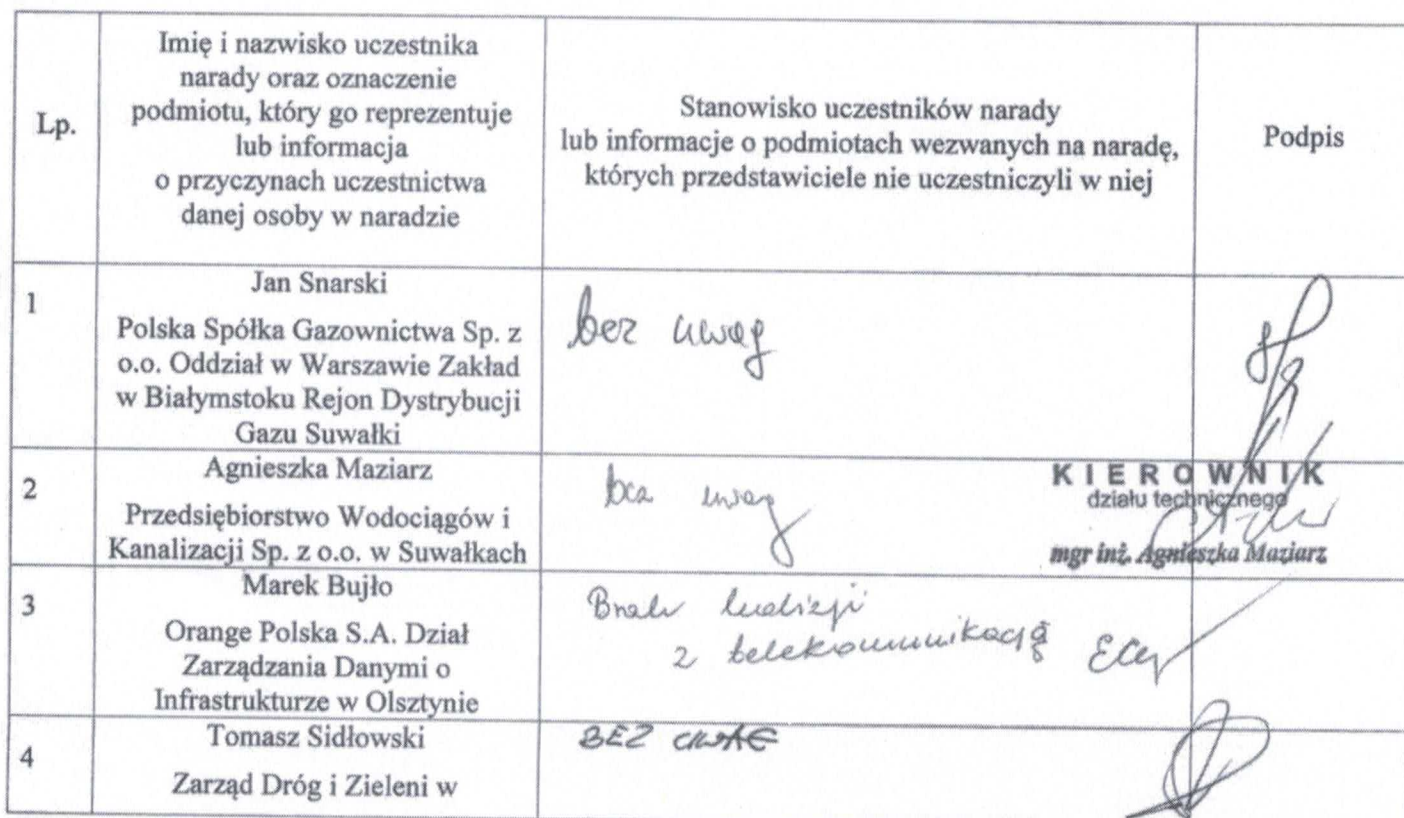 Lp.
Imię i nazwisko uczestnika
narady oraz oznaczenie
podmiotu, który go reprezentuje
lub informacja
o przyczynach uczestnictwa
danej osoby w naradzie
Stanowisko uczestników narady
lub informacje o podmiotach wezwanych na naradę,
których przedstawiciele nie uczestniczyli w niej
Podpis
1
Jan Snarski
Polska Spółka Gazownictwa Sp. z
o.o. Oddział w Warszawie Zakład
w Białymstoku Rejon Dystrybucji
Gazu Suwałki
bez uwag
2
Agnieszka Maziarz
Przedsiębiorstwo Wodociągów i
Kanalizacji Sp. z o.o. w Suwałkach
bez uwag
KIEROWNIK
działu technicznego
mgr inż. Agnieszka Maziarz
3
Marek Bujło
Orange Polska S.A. Dział
Zarządzania Danymi o
Infrastrukturze w Olsztynie
Brak kolizji
z telekomunikacją
4
Tomasz Sidłowski
Zarząd Dróg i Zieleni w
BEZ UWAG